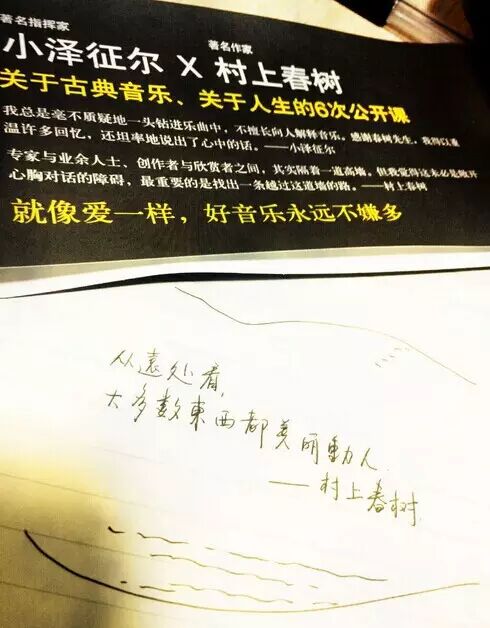 著名指挥家
著名作家
小泽征尔 X 村上春树
关于古典音乐、关于人生的6次公开课
我总是毫不质疑地一头钻进乐曲中，不擅长向人解释音乐。感谢春树先生，我得以重
温许多回忆，还坦率地说出了心中的话。——小泽征尔
专家与业余人士、创作者与欣赏者之间，其实隔着一道高墙。但我觉得这未必是敞开
心胸对话的障碍，最重要的是找出一条越过这道墙的路。——村上春树
就像爱一样，好音乐永远不嫌多
从远处看，
大多数東西都美丽動人
——村上春树